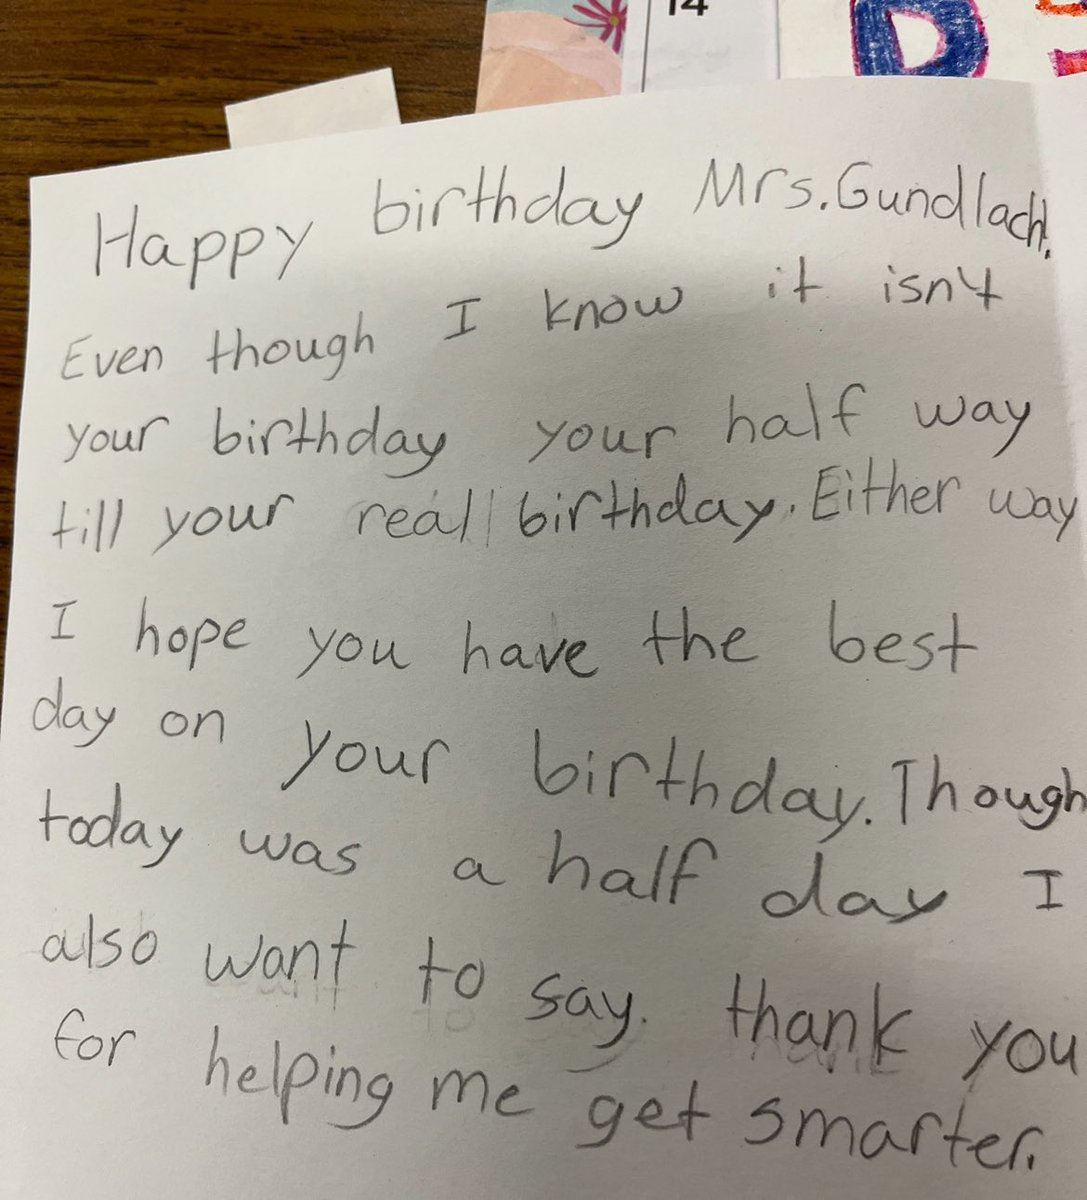 14
D
Happy birthday Mrs. Gundlach.
Even though I know it isn't
your birthday your half way
till your real birthday. Either way
I hope you have the best
day on your birthday. Though
today was a half day I
also want to say. thank you
for helping me get smarter.